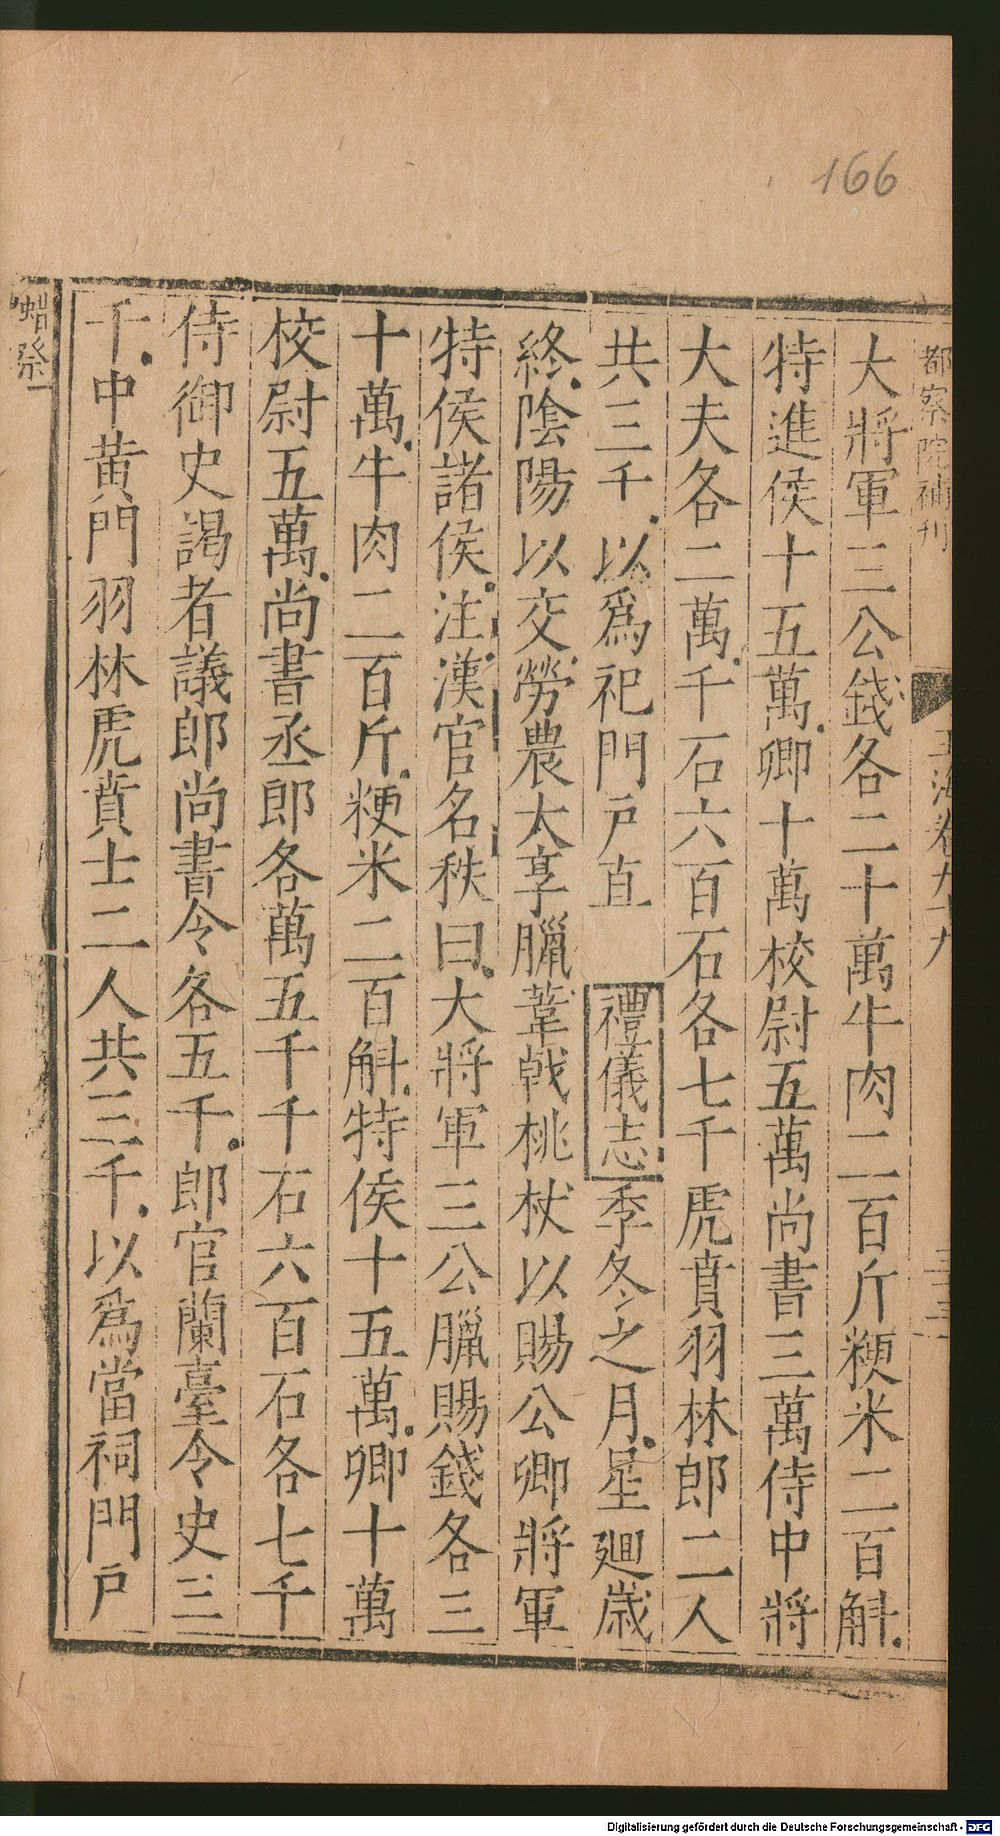 166
都察院補刊
玉海卷九十九
大將軍三公錢各二十萬牛肉二百斤粳米二百斛
特進侯十五萬卿十萬校尉五萬尚書三萬侍中將
大夫各二萬千石六百石各七千虎賁羽林郎二人
共三千以爲祀門戶直 禮儀志季冬之月星廻歲
終陰陽以交勞農大享臘葦戟桃杖以賜公卿將軍
特侯諸侯注漢官名秩曰大將軍三公臘賜錢各三
十萬牛肉二百斤粳米二百斛特侯十五萬卿十萬
校尉五萬尚書丞郎各萬五千千石六百石各七千
侍御史謁者議郎尚書令各五千郎官蘭臺令史三
千中黄門羽林虎賁士二人共三千以爲當祠門戶
蜡祭
Digitalisierung gefördert durch die Deutsche Forschungsgemeinschaft - DFG